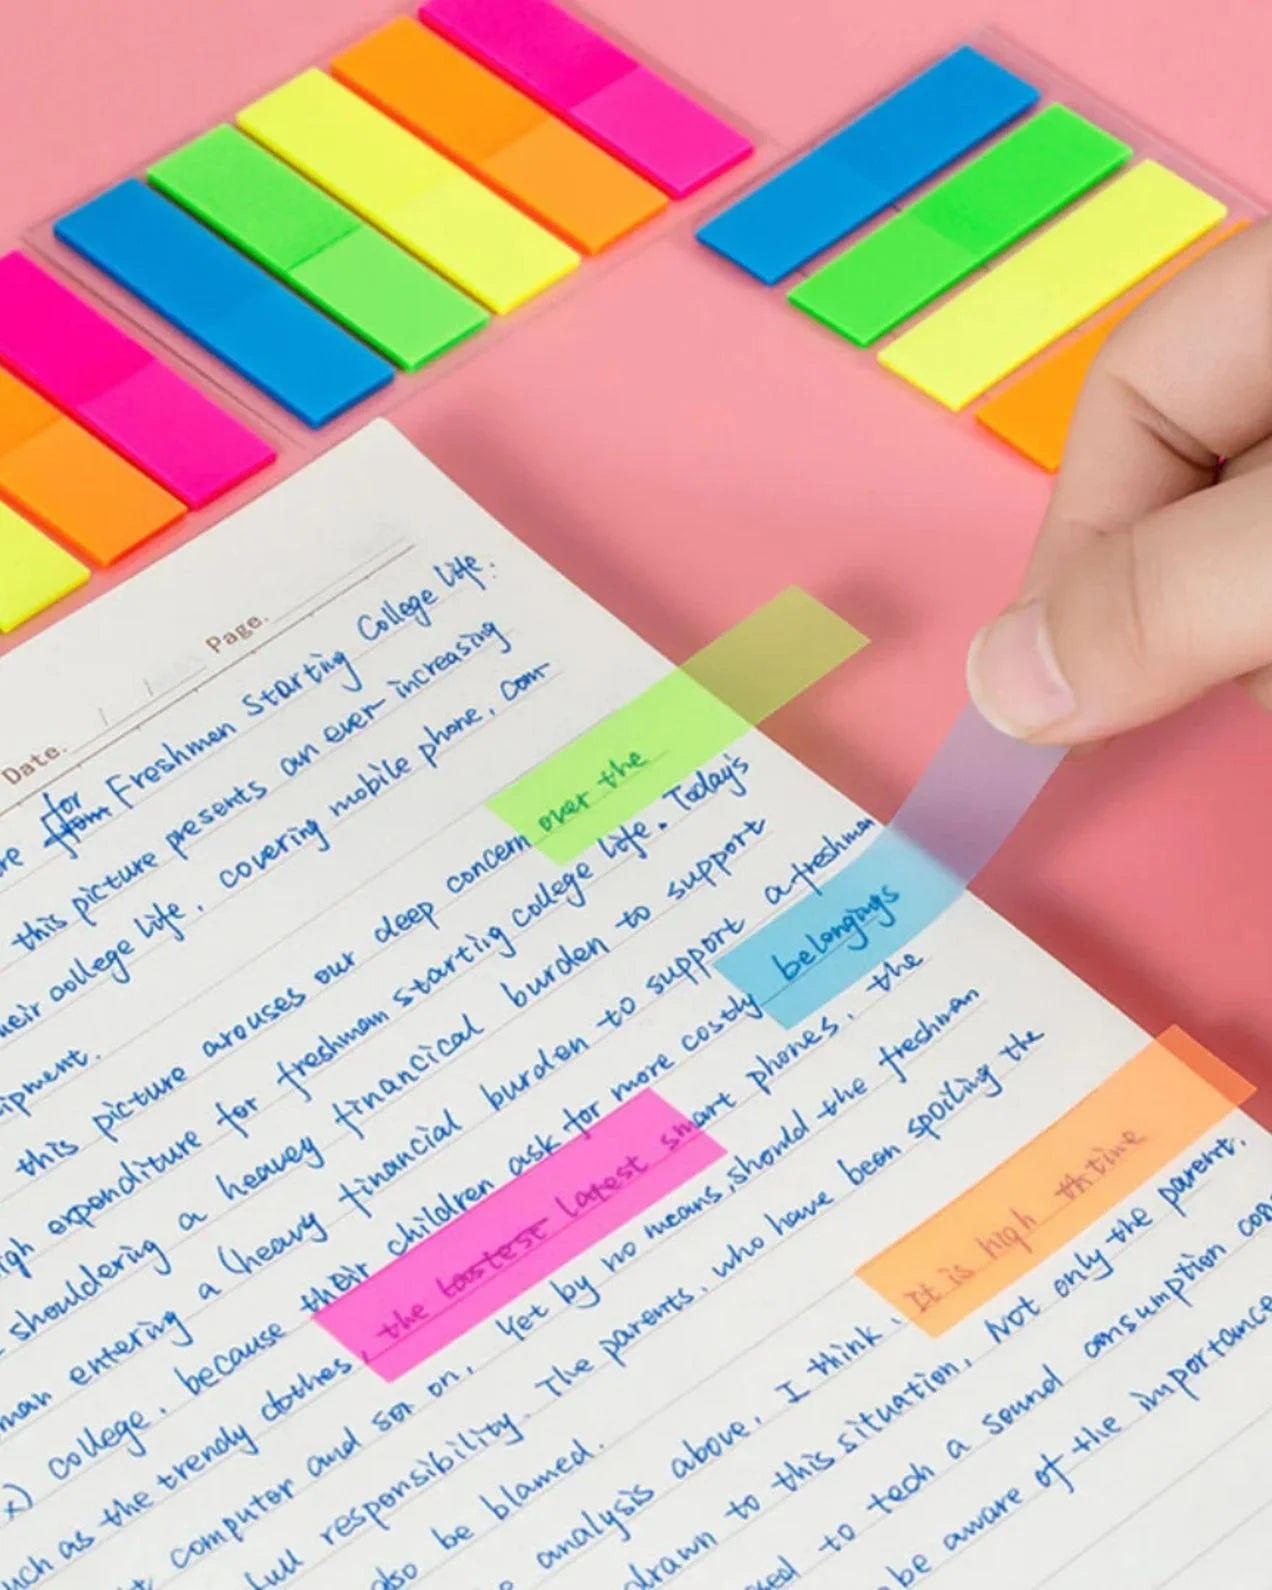 Date. Page.
for Freshmen Starting College Life.
this picture presents an ever increasing
college life, covering mobile phone, com-
ipment.
this picture arouses our deep concern over the
expenditure for freshman starting college life. Today's
shouldering a heavey financical burden to support
man entering a (heavy financial burden to support a freshman
x) college, because their children ask for more costly belongings
such as the trendy clothes, the lastest latest smart phones, the
computer and so on. Yet by no means, should the freshman
full responsibility. The parents, who have been spoiling the
also be blamed.
analysis above, I think, It is high th time
drawn to this situation. Not only the parent.
to tech a sound consumption con
be aware of the importance